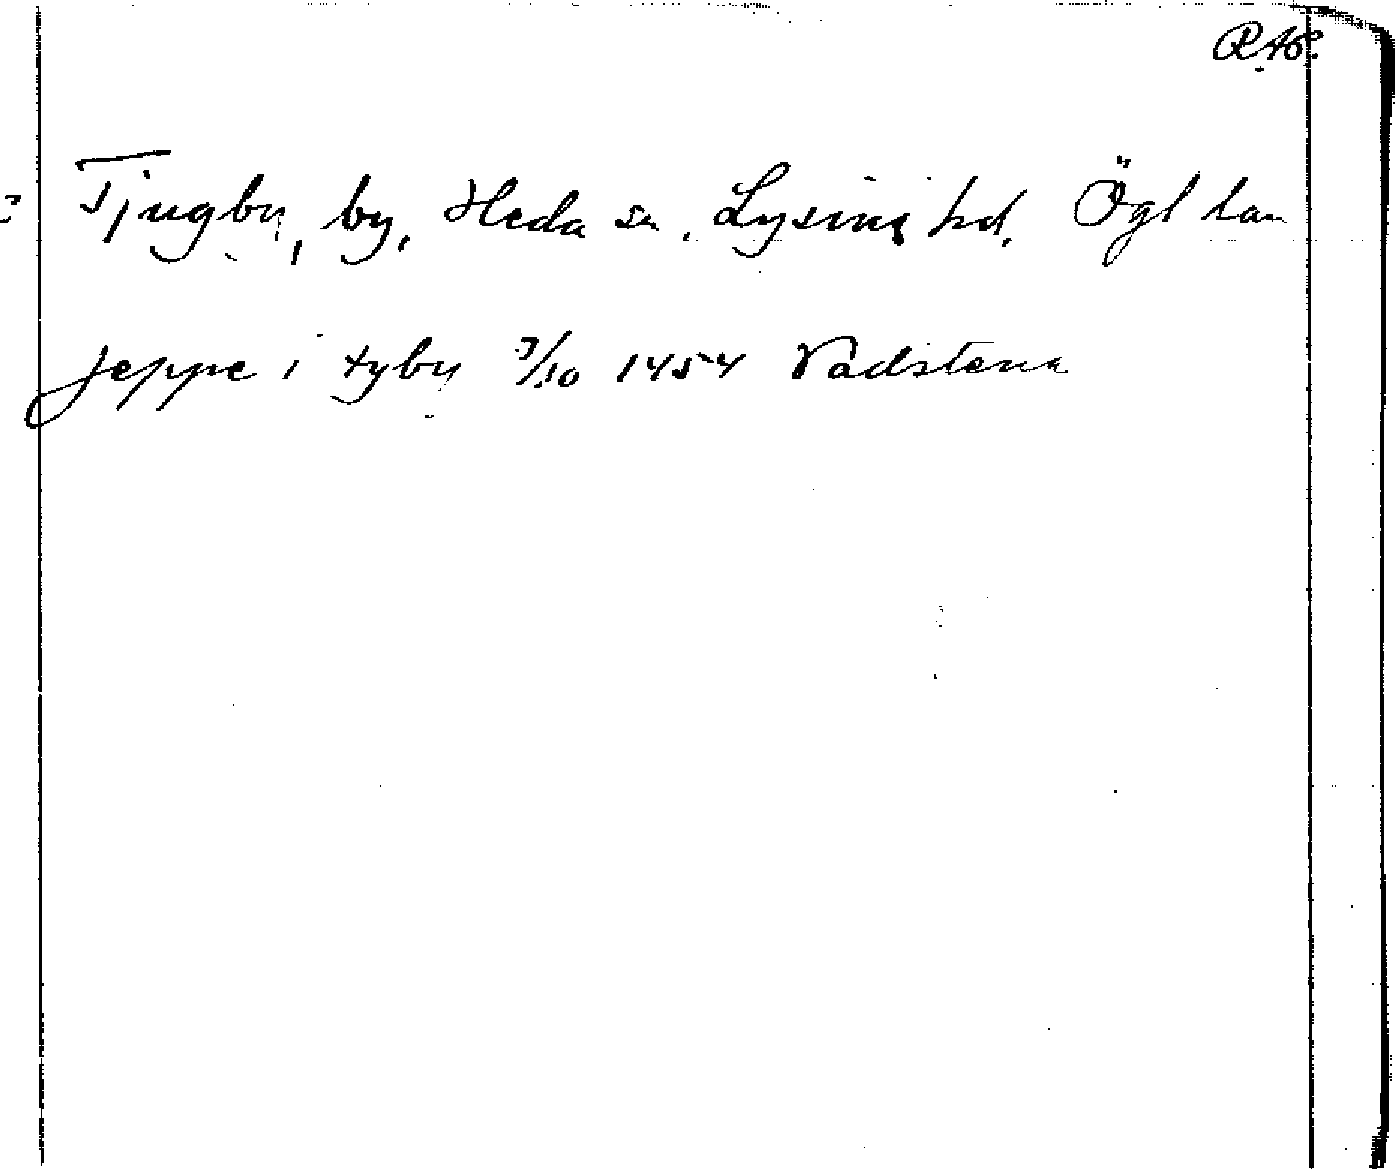 RAp.
Tjugby, by, Heda sn, Lysings hd, Ögl län
jeppe i tyby 7/10 1454 Vadstena